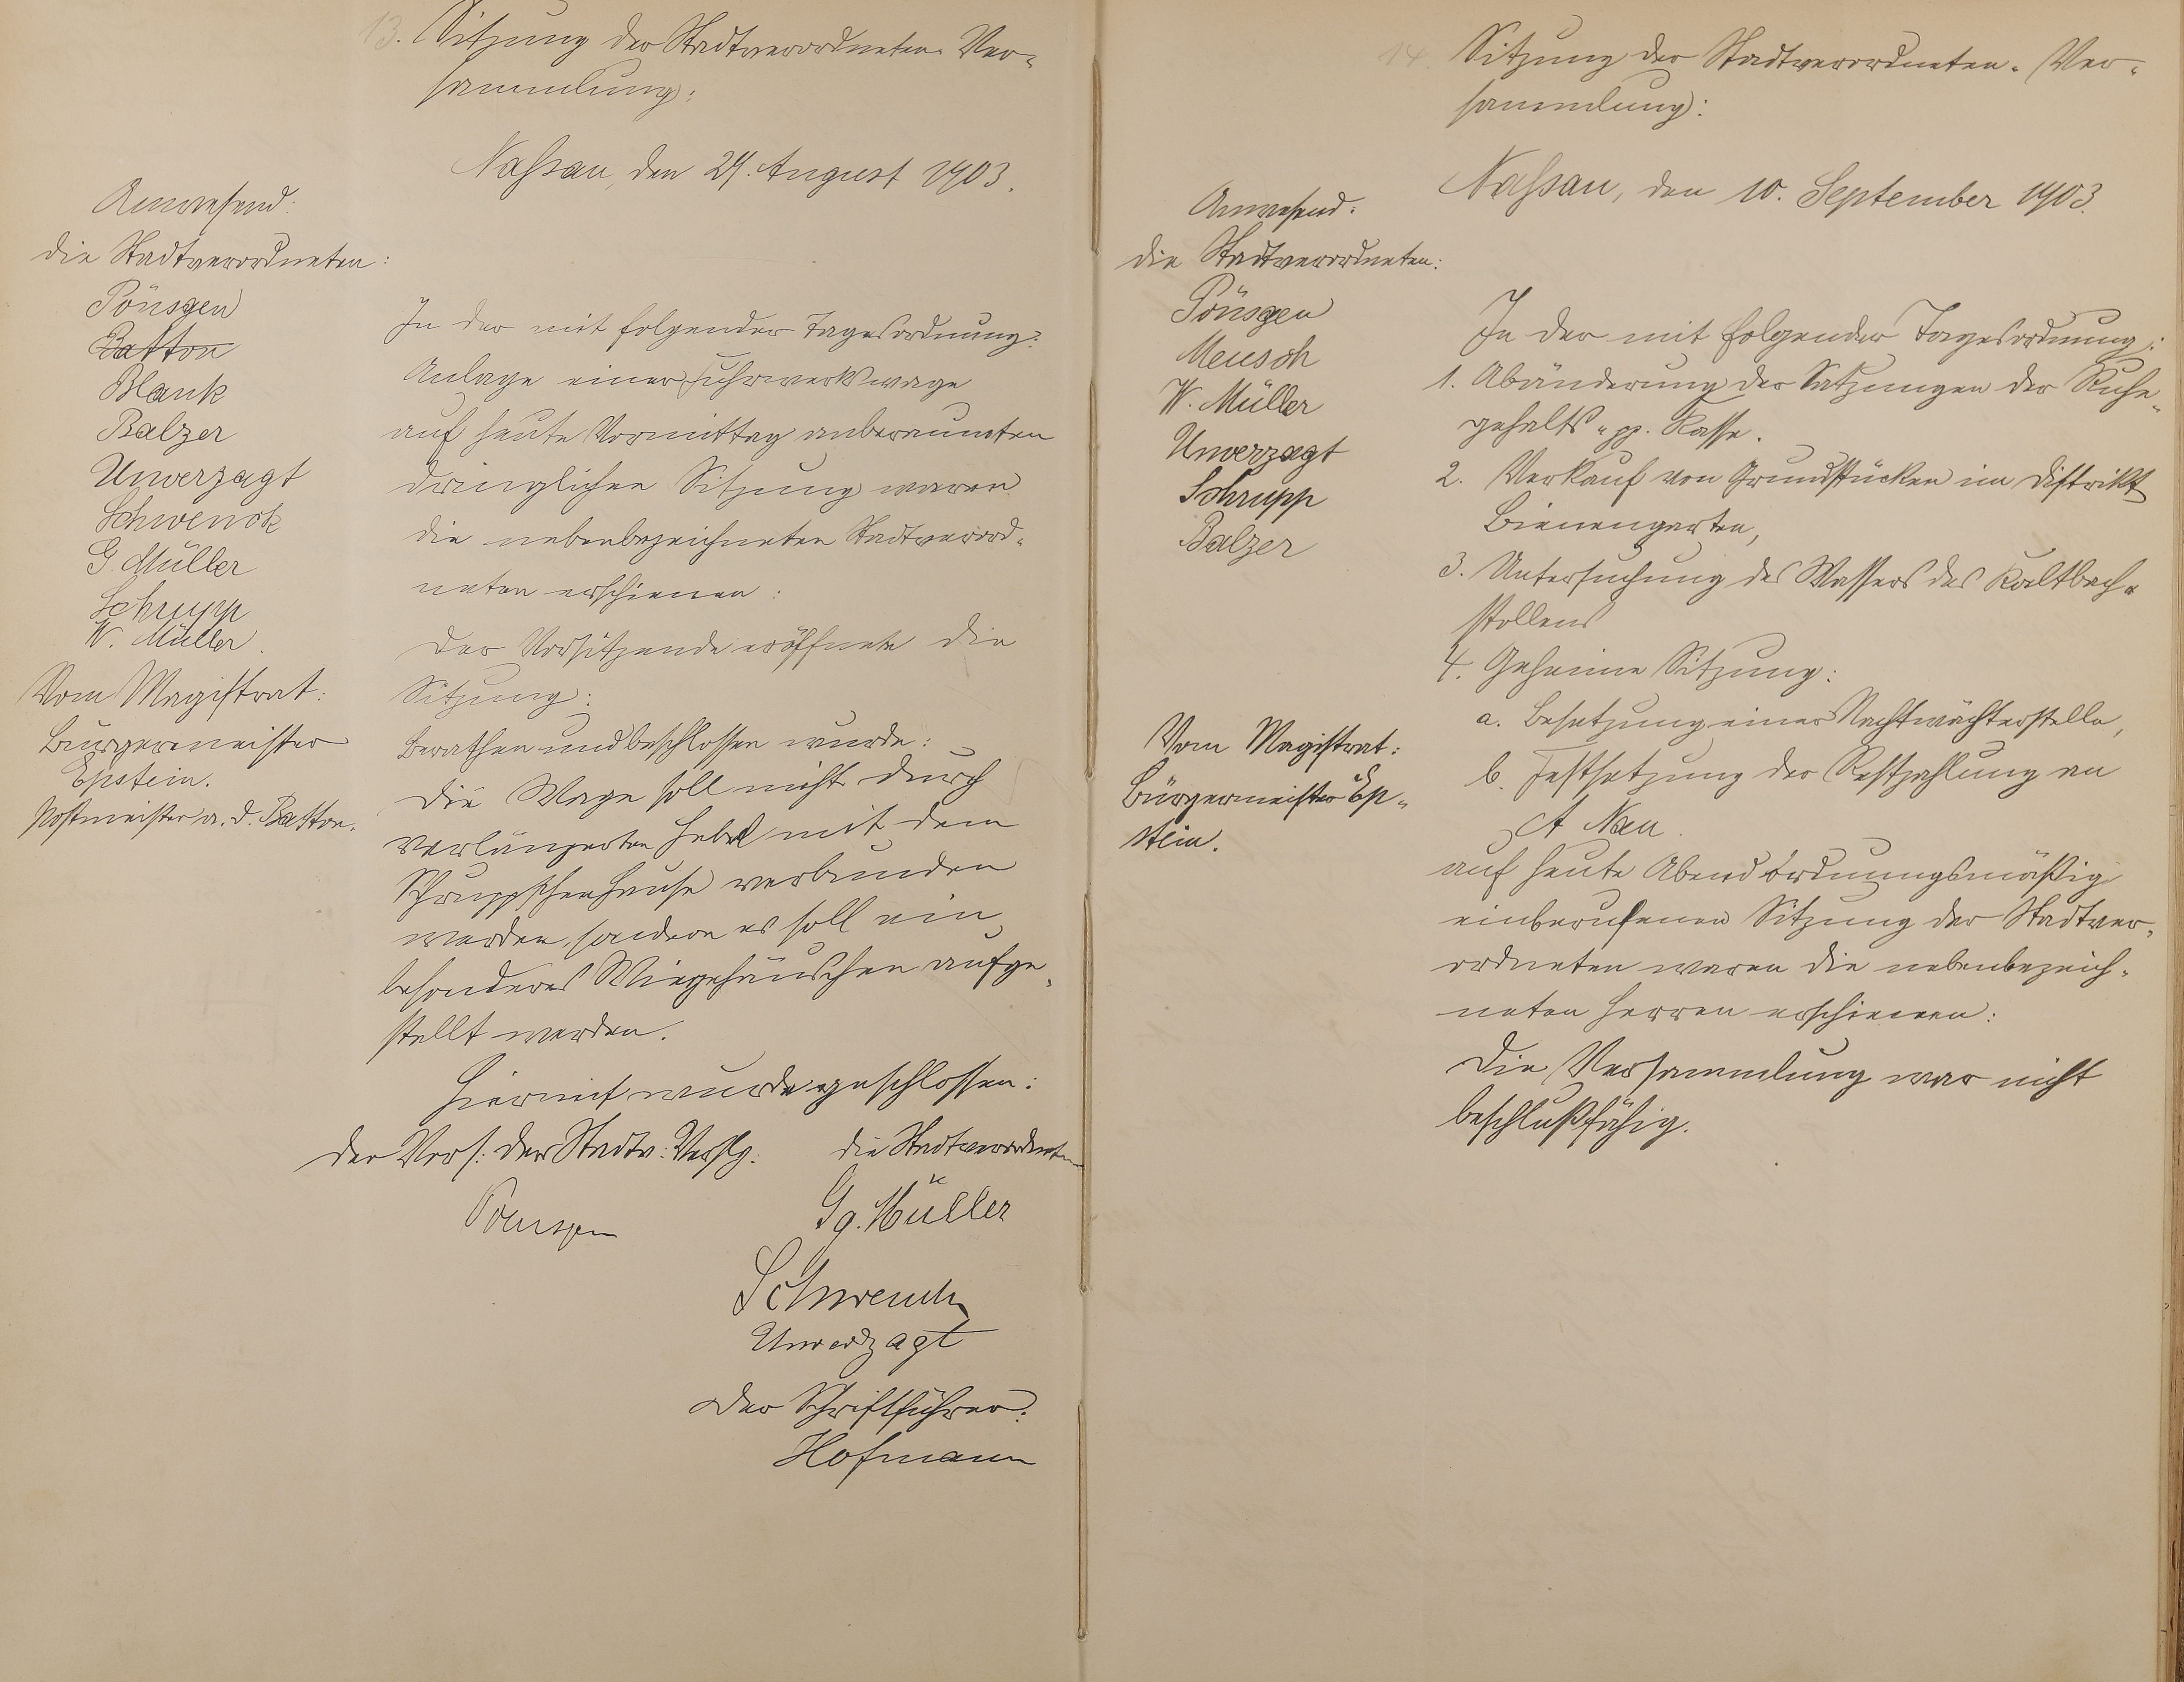 13. Sitzung der Stadtverordneten-Ver-
sammlung:
Nassau, den 29. August 1903.
Anwesend:
die Stadtverordneten:
Pönsgen
Batton
Blank
Balzer
Unverzagt
Schwenck
G. Müller
Schrupp
W. Müller.
Vom Magistrat:
Bürgermeister
Epstein.
Postmeister a. D. Batton.
In der mit folgender Tagesordnung:
Anlage einer Fuhrwerkswage
auf heute Vormittag anberaumten
dringlichen Sitzung waren
die nebenbezeichneten Stadtverord-
neten erschienen:
Der Vorsitzende eröffnete die
Sitzung:
Berathen und beschlossen wurde:
Die Wage soll nicht durch
verlängerten Hebel mit dem
Schruppschen Hause verbunden
werden, sondern es soll ein
besonderes Wiegehäuschen aufge-
stellt werden.
Hiermit wurde geschlossen:
Der Vors: der Stadtv: Verslg: die Stadtverordneten
Poensgen Gg. Müller
Schwenck
Unverzagt
Der Schriftführer:
Hofmann
14. Sitzung der Stadtverordneten-Ver-
sammlung:
Nassau, den 10. September 1903.
Anwesend:
die Stadtverordneten:
Pönsgen
Meusch
W. Müller
Unverzagt
Schrupp
Balzer
Vom Magistrat:
Bürgermeister Ep-
stein.
In der mit folgender Tagesordnung:
1. Abänderung der Satzungen der Ruhe-
gehalts- pp. Kasse.
2. Verkauf von Grundstücken im Distrikt
Bienengarten,
3. Untersuchung des Wassers des Kaltbach-
stollens
4. Geheime Sitzung:
a. Besetzung einer Nachtwächterstelle,
b. Festsetzung der Restzahlung an
A Nau
auf heute Abend ordnungsmäßig
einberufenen Sitzung der Stadtver-
ordneten waren die nebenbezeich-
neten Herren erschienen:
Die Versammlung war nicht
beschlußfähig.